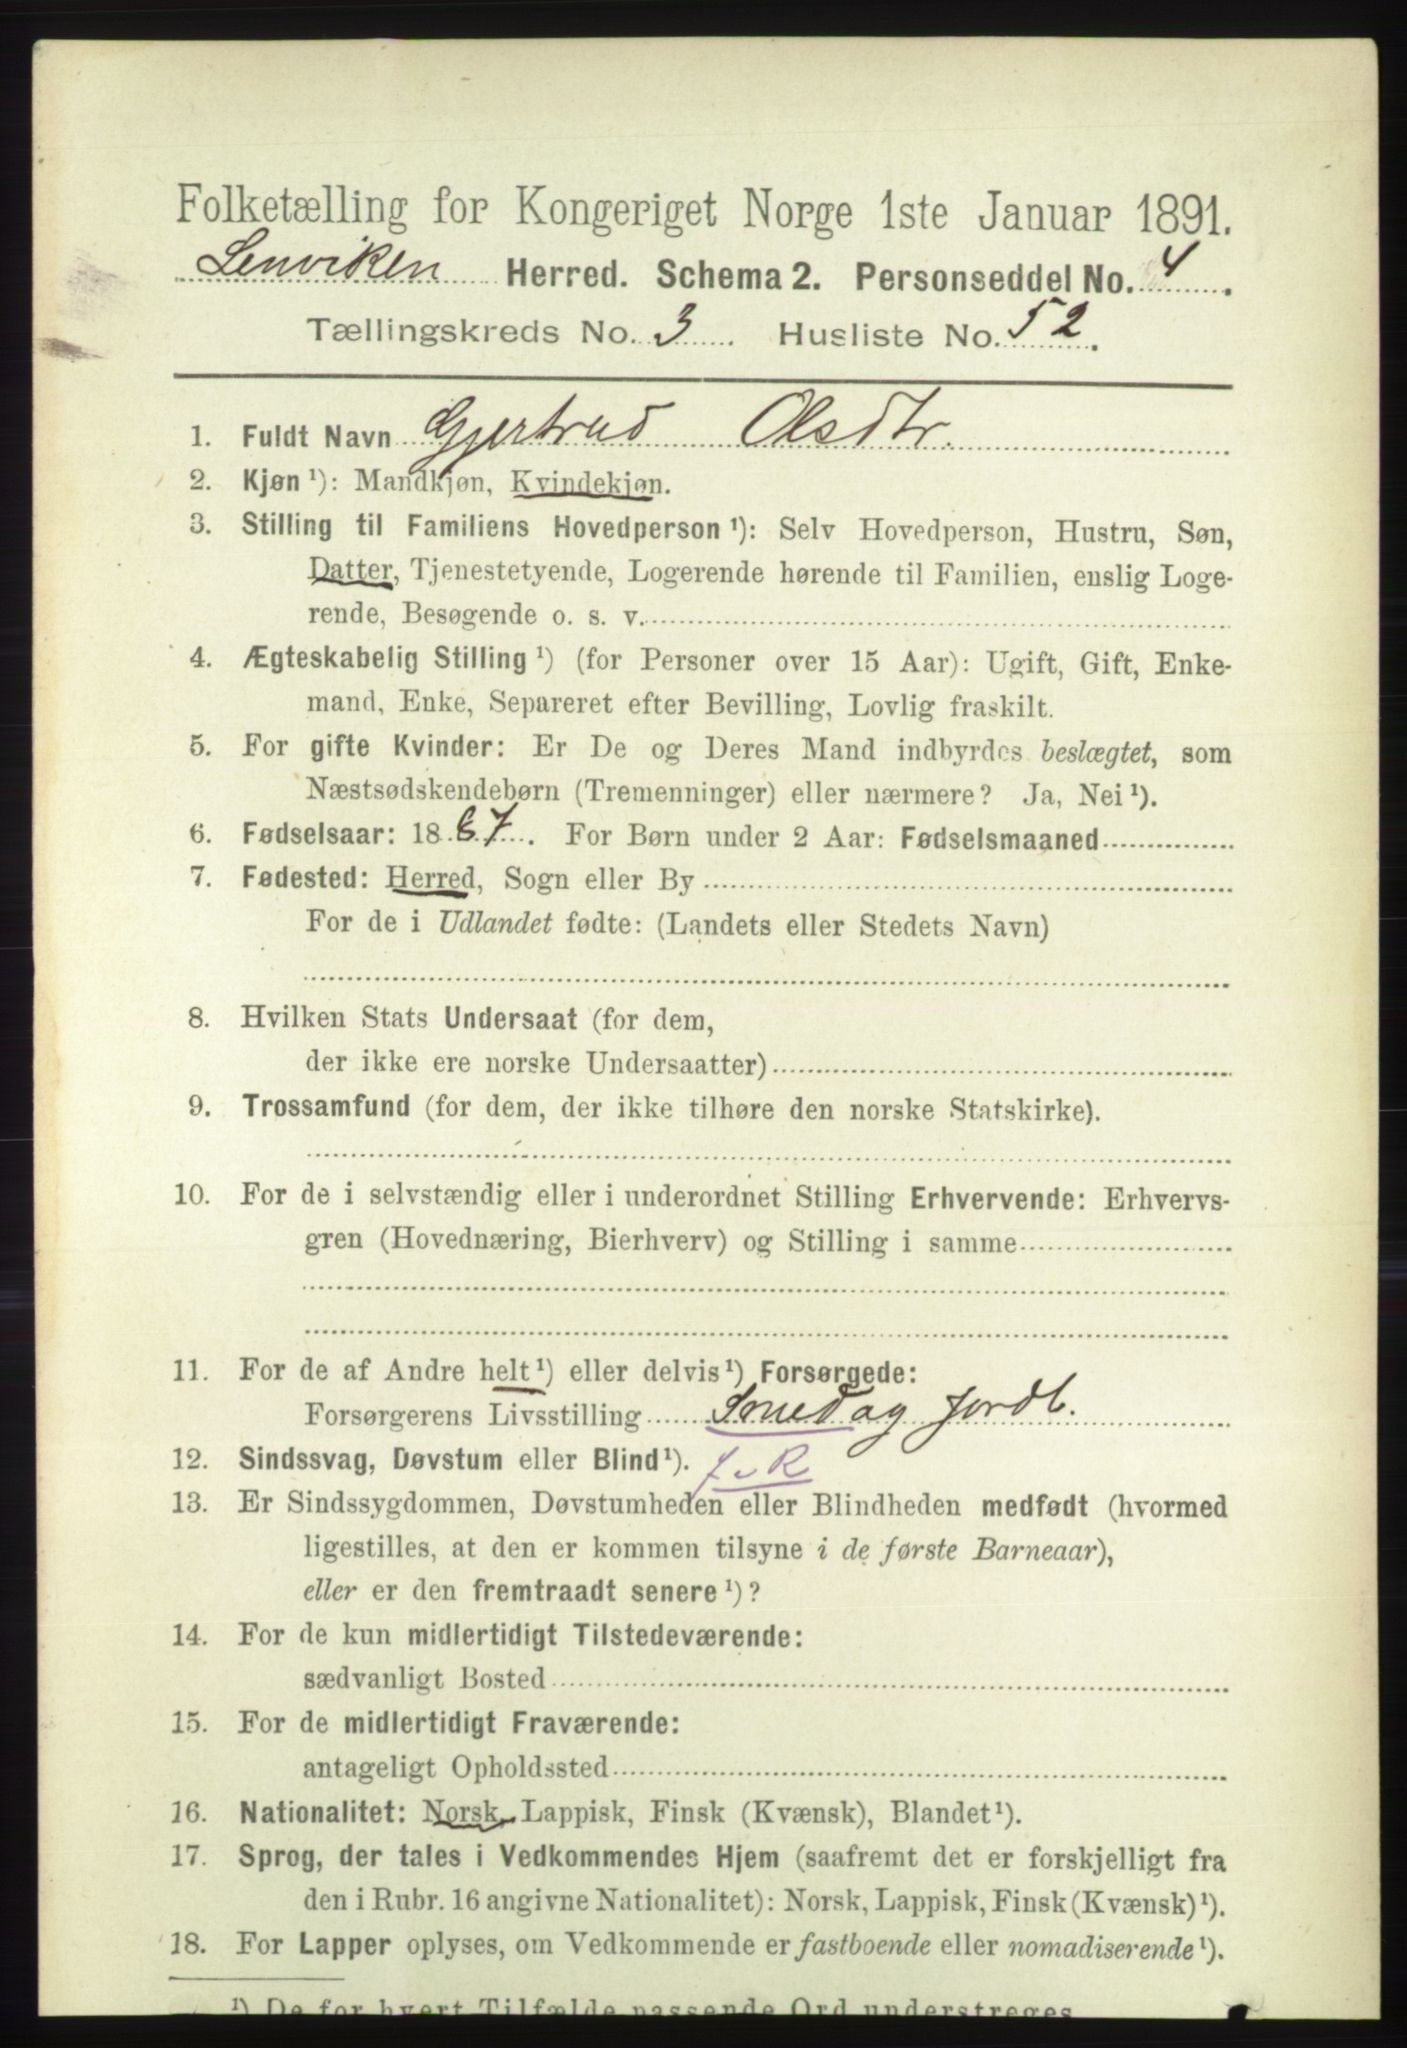 Folketælling for Kongeriget Norge 1ste Januar 1891.
Lenviken Herred. Schema 2. Personseddel No. 4.
Tællingskreds No. 3. Husliste No. 52.
1. Fuldt Navn Gjertrud Olsdtr.
2. Kjøn ¹): Mandkjøn, Kvindekjøn.
3. Stilling til Familiens Hovedperson ¹): Selv Hovedperson, Hustru, Søn,
Datter, Tjenestetyende, Logerende hørende til Familien, enslig Loge-
rende, Besøgende o. s. v.
4. Ægteskabelig Stilling ¹) (for Personer over 15 Aar): Ugift, Gift, Enke-
mand, Enke, Separeret efter Bevilling, Lovlig fraskilt.
5. For gifte Kvinder: Er De og Deres Mand indbyrdes beslægtet, som
Næstsødskendebørn (Tremenninger) eller nærmere? Ja, Nei ¹).
6. Fødselsaar: 18 87. For Børn under 2 Aar: Fødselsmaaned
7. Fødested: Herred, Sogn eller By
For de i Udlandet fødte: (Landets eller Stedets Navn)
8. Hvilken Stats Undersaat (for dem,
der ikke ere norske Undersaatter)
9. Trossamfund (for dem, der ikke tilhøre den norske Statskirke).
10. For de i selvstændig eller i underordnet Stilling Erhvervende: Erhvervs-
gren (Hovednæring, Bierhverv) og Stilling i samme
11. For de af Andre helt ¹) eller delvis ¹) Forsørgede:
Forsørgerens Livsstilling Smed og Jordb.
12. Sindssvag, Døvstum eller Blind ¹).
13. Er Sindssygdommen, Døvstumheden eller Blindheden medfødt (hvormed
ligestilles, at den er kommen tilsyne i de første Barneaar),
eller er den fremtraadt senere ¹)?
14. For de kun midlertidigt Tilstedeværende:
sædvanligt Bosted
15. For de midlertidigt Fraværende:
antageligt Opholdssted
16. Nationalitet: Norsk, Lappisk, Finsk (Kvænsk), Blandet ¹).
17. Sprog, der tales i Vedkommendes Hjem (saafremt det er forskjelligt fra
den i Rubr. 16 angivne Nationalitet): Norsk, Lappisk, Finsk (Kvænsk) ¹).
18. For Lapper oplyses, om Vedkommende er fastboende eller nomadiserende ¹).
¹) De for hvert Tilfælde passende Ord understreges